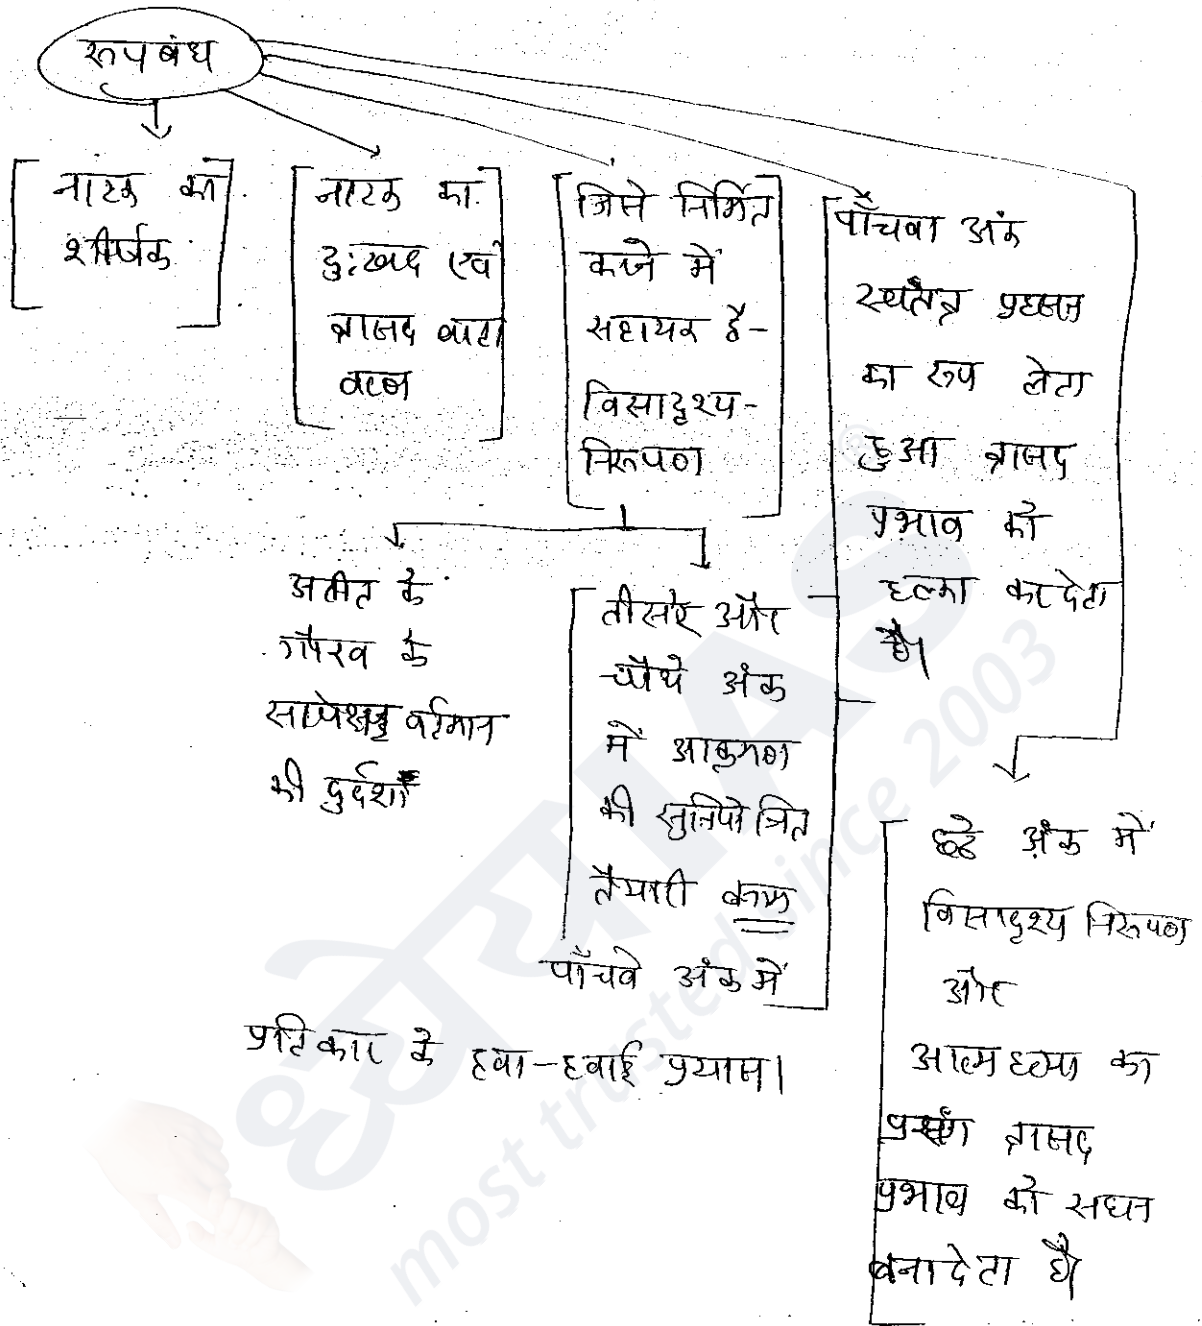 रूपबंध
नाटक का
शीर्षक
नाटक का
दुःखद एवं
त्रासद वाता
वरण
जिसे निर्मित
करने में
सहायक है-
विसादृश्य-
निरूपण
पाँचवा अंक
स्वतंत्र प्रहसन
का रूप लेता
हुआ त्रासद
प्रभाव को
हल्का कर देता
है।
अतीत के
गौरव के
सापेक्ष वर्तमान
की दुर्दशा
तीसरे और
चौथे अंक
में आक्रमण
की सुनियोजित
तैयारी बनाम
पाँचवे अंक में
प्रतिकार के हवा-हवाई प्रयास।
छठे अंक में
विसादृश्य निरूपण
और
आत्महत्या का
प्रसंग त्रासद
प्रभाव को सघन
बना देता है।
ध्येय IAS
most trusted since 2003